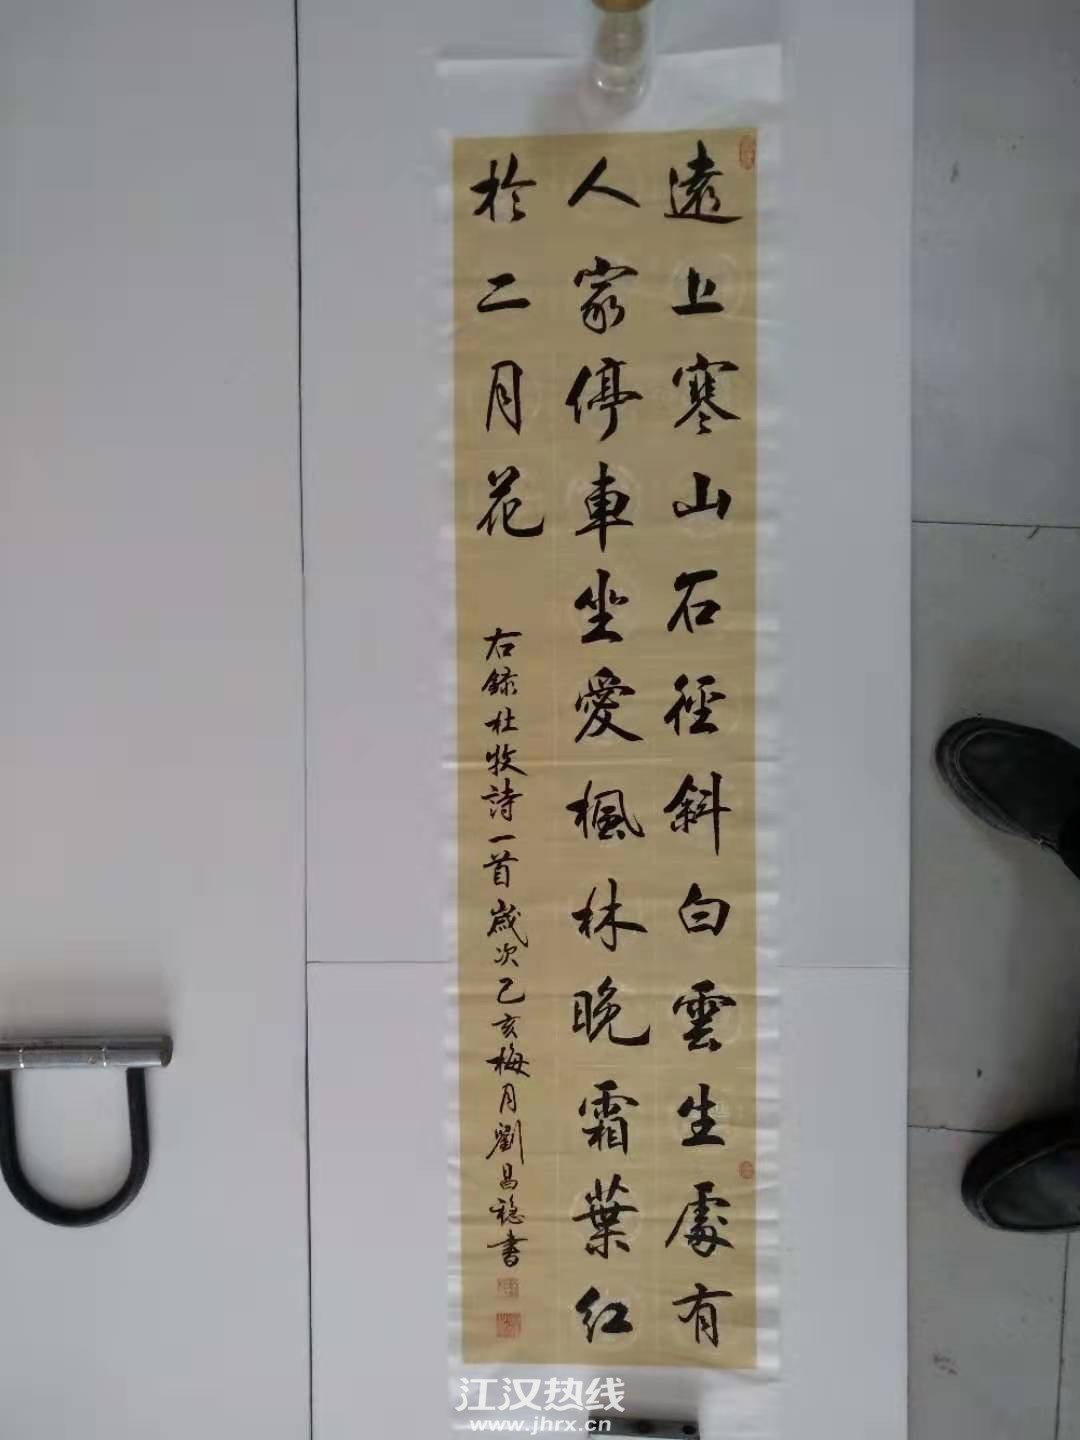 遠上寒山石徑斜白雲生處有
人家停車坐愛楓林晚霜葉紅
於二月花
右錄杜牧詩一首歲次己亥梅月劉昌稳書
江汉热线
www.jhrx.cn